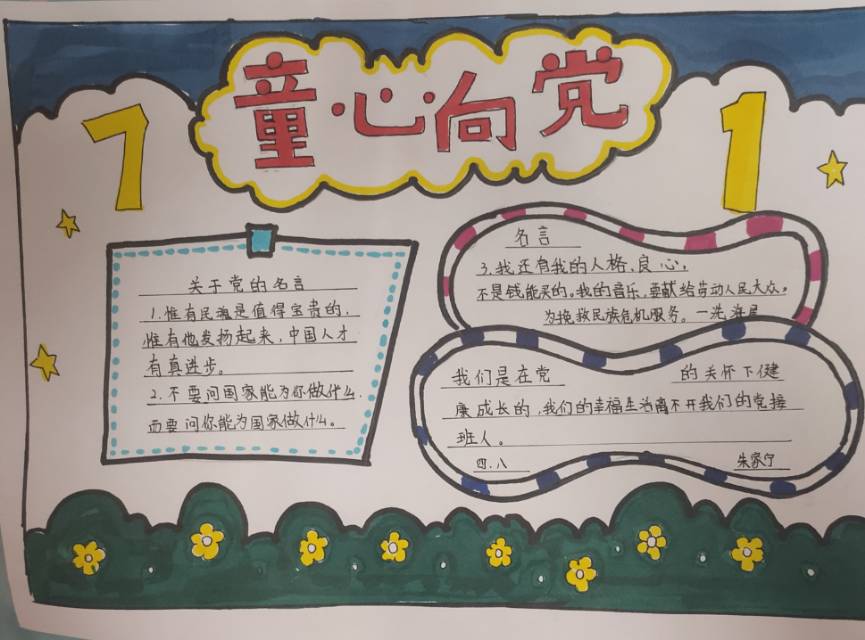 童心向党
7
1
关于党的名言
1.惟有民魂是值得宝贵的,
惟有他发扬起来,中国人才
有真进步。
2.不要问国家能为你做什么,
而要问你能为国家做什么。
名言
3.我还有我的人格、良心,
不是钱能买的。我的音乐,要献给劳动人民大众。
为挽救民族危机服务。一冼海星
我们是在党 的关怀下健
康成长的,我们的幸福生活离不开我们的党接
班人。
四.八 朱家宁